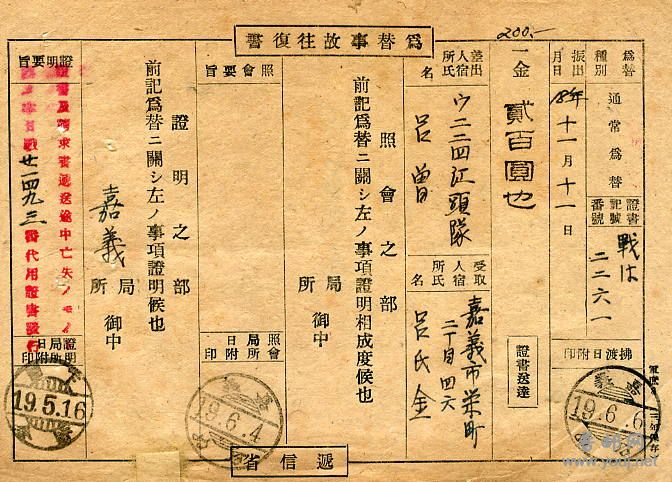 為替事故往復書
200.-
為替種別
通常為替
證書記號番號
戦は
二二六一
振出月日
18年十一月十一日
一金
貳百圓也
證書送達
拂渡日附印
19.6.6
差出人宿所氏名
ウ二二四江頭隊
呂曾
受取人宿所氏名
嘉義市栄町
二丁目四六
呂氏金
照會之部
前記為替ニ關シ左ノ事項證明相成度候也
局
所
御中
照會要旨
照會局所日附印
19.6.4
證明之部
前記為替ニ關シ左ノ事項證明候也
嘉義
局
所
御中
證明要旨
證書及請求書遞送途中亡失ノ
廿一四九三
號代用證書發行
證明局所日附印
19.5.16
遞信省
www.youji.net